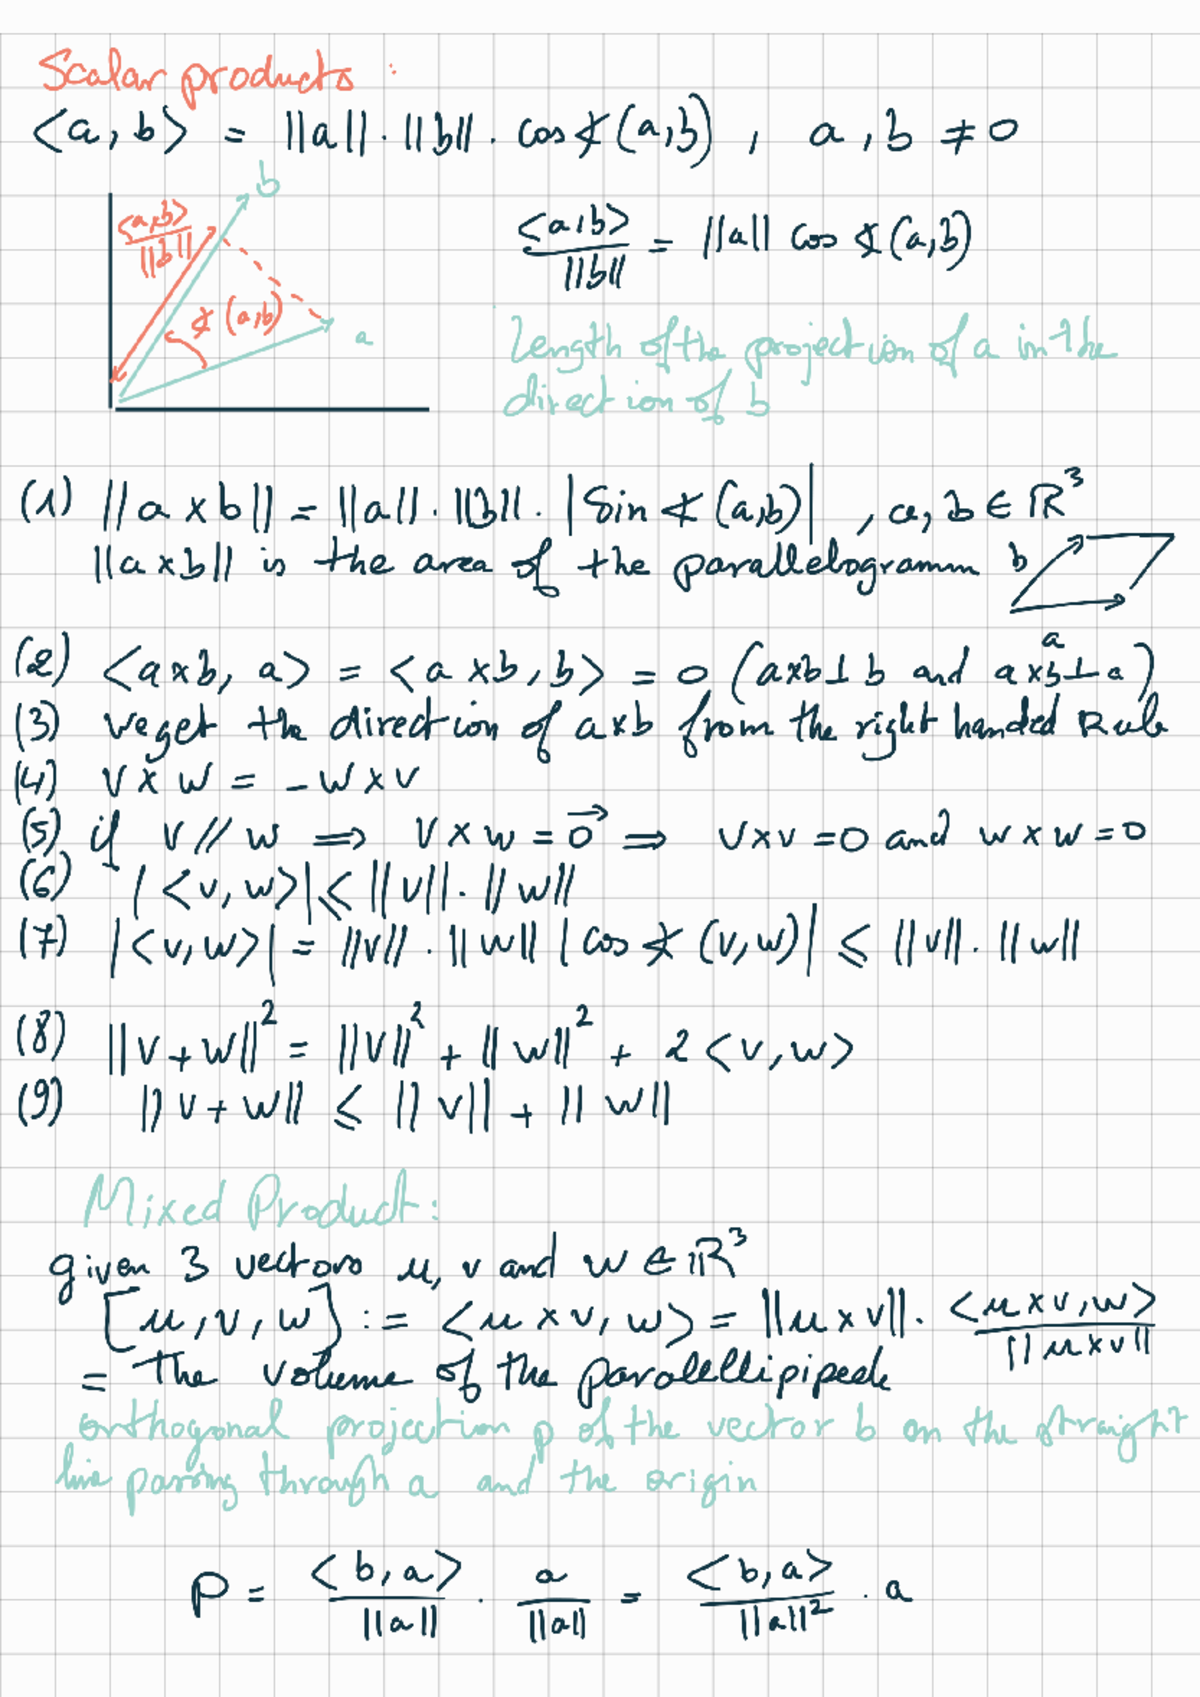 Scalar products :
<a, b> = ||a|| . ||b|| . cos∡(a,b) , a , b ≠ 0
b
<a,b> / ||b||
∡(a,b)
a
<a,b> / ||b|| = ||a|| cos ∡(a,b)
Length of the projection of a in the
direction of b
(1) ||a x b|| = ||a|| . ||b|| . |Sin ∡(a,b)| , a, b ∈ ℝ³
||a x b|| is the area of the parallelogramm
b
a
(2) <a x b, a> = <a x b, b> = 0 (axb⊥b and axb⊥a)
(3) we get the direction of axb from the right handed Rule
(4) V x W = - W x V
(5) if V // W ⟹ V x W = 0⃗ ⟹ V x V = 0 and W x W = 0
(6) |<v, w>| ≤ ||v|| . ||w||
(7) |<v, w>| = ||v|| . ||w|| |cos ∡(v, w)| ≤ ||v|| . ||w||
(8) ||V + W||² = ||V||² + ||W||² + 2 <v, w>
(9) ||v + w|| ≤ ||v|| + ||w||
Mixed Product :
given 3 vectors u, v and w ∈ ℝ³
[u, v, w] := <u x v, w> = ||u x v|| . <u x v, w> / ||u x v||
= The volume of the paralellipipede
orthogonal projection p of the vector b on the straight
line passing through a and the origin
P = <b, a> / ||a|| . a / ||a|| = <b, a> / ||a||² . a